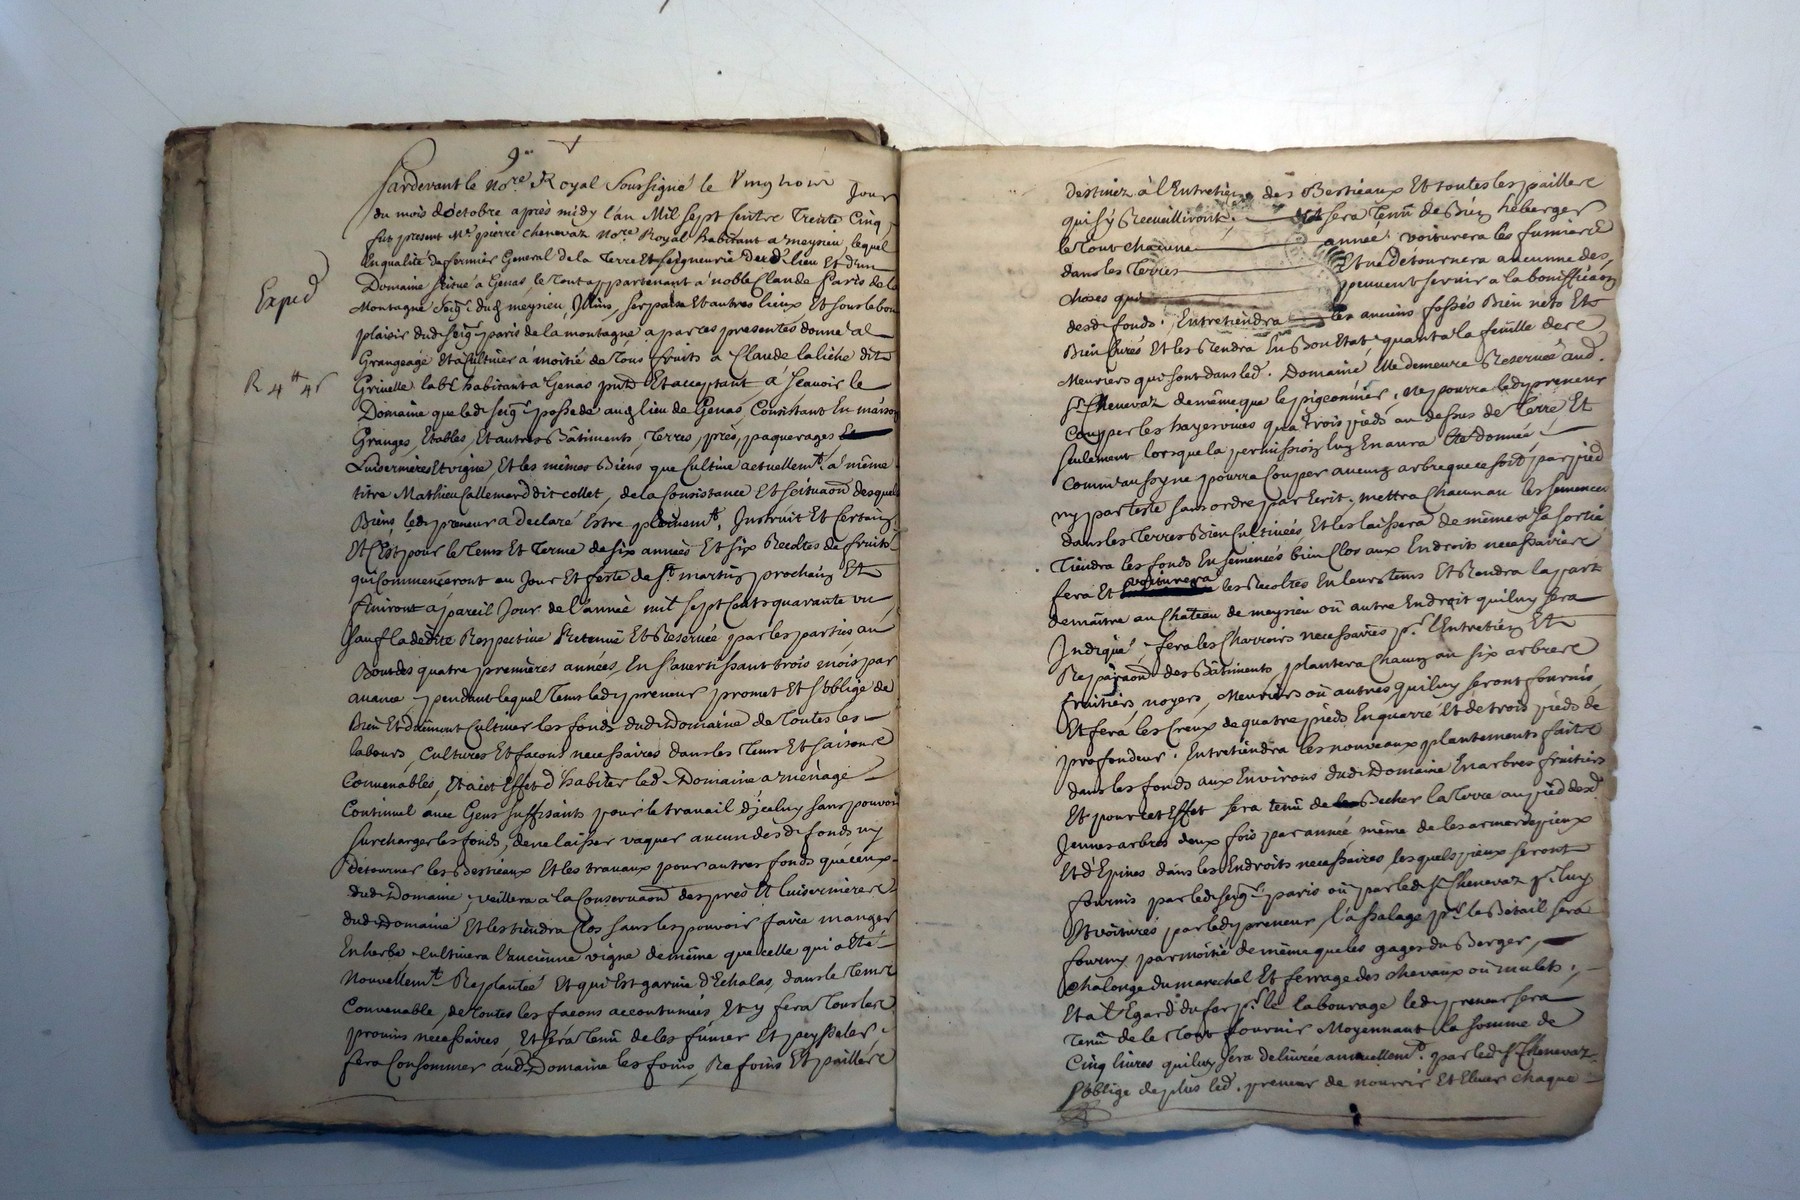 9
Pardevant le no.re Royal Soussigné le Jour
du mois doctobre après midy l'an Mil sept Centz Trente Cinq,
fut present Me pierre Chenevaz no.re Royal habitant a meysieu, lequel
En qualité de fermier General de la Terre Et seigneurie dud lieu Et d'un
Domaine scitué a Genas, le tout appartenant a noble Claude Paris de la
Expd
Montagne seigr dud meysieu, et autres lieux, Et sous le bon
plaisir dud seigr paris de la montagne a par ces presentes donné al
Grangeage Et a Cultiver a moitié de tous fruits a Claude laliche dit
R 4tt 4s
Grivelle labr habitant a Genas pnt Et acceptant a scavoir le
Domaine que led seigr possede aud lieu de Genas, Consistant En maison
Granges, Etables, Et autres Bâtiments, Terres, prés, paquerages
Luisernieres Et vigne, Et les mêmes Biens que Cultive actuellemt. a même
titre Mathieu Callemard dit collet, de la Consistance Et scituaon desquels
Biens led preneur a declaré Estre pleinemt. Instruit Et Certain
Et C'est pour le tems Et terme de six années Et six Recoltes de fruits
qui Commenceront au Jour Et feste de st martin prochain Et
finiront a pareil Jour de l'année mil sept Cents quarante un,
sauf la dedite Respective Retenue Et Reservée par les parties au
Bout des quatre premieres années, En s'avertissant trois mois par
avance, pendant lequel tems led preneur promet Et s'oblige de
Bien Et duement Cultiver les fonds dud Domaine de toutes les
labours, Cultures Et façons necessaires dans les tems Et saisons
Convenables, Et a cet Effet d'habiter led. Domaine a menage
Continuel avec Gens suffisants pour le travail d'jceluy sans pouvoir
surcharger les fonds, de ne laisser vaquer aucun desd fonds ny
detourner les Bestieaux Et les travaux pour autres fonds que ceux
dud Domaine, veillera a la Conservaon des pres Et luisernieres
dud Domaine Et les tiendra Clos sans les pouvoir faire manger
En herbe. Cultivera l'ancienne vigne de même que celle qui a Eté
Nouvellemt. Replantée Et qui Est garnie d'Echalas, dans le tems
Convenable, de toutes les façons accoutumées Et y fera tous les
provins necessaires, Et sera tenu de les fumer Et peysseler.
fera Consommer aud Domaine les foins, Refoins Et paillers
destinez à l'Entretien des Bestieaux Et toutes les pailles
qui s'y Recueilliront; Et sera tenu de Bien heberger
le tout chacune année. voiturera les fumiers
dans les terres Et ne detournera aucunne des
choses qui peuvent servir a la boniffication
desd. fonds. Entretiendra les anciens fossés Bien neto Et
Bien Curés Et les Rendra En Bon Etat quant a la feuille des
Meuriers qui sont dans led. Domaine Elle demeure Reservée aud.
sr. Chenevaz de même que le pigeonnier, Ne pourra led preneur
Couper les hayes vives qu'a trois pieds au dessus de terre, Et
seulement lorsque la permission luy En aura Eté donnée;
Comm'aussy ne pourra Couper aucung arbre que ce soit par pied
ny par teste sans ordre par Ecrit, mettra Chacun an les semences
dans les terres Bien Cultivées, Et les laissera de même a sa sortie
Tiendra les fonds Ensemencés bien Clos aux Endroits necessaires
fera Et voiturera les Recoltes En leurs tems Et Rendra la part
de maître au Château de meysieu où autre Endroit qui luy sera
Indiqué. fera les Charrois necessaires pr. l'Entretien Et
Reparaon des Bâtiments, plantera Chacun an six arbres
fruitiers, noyers, Meuriers où autres qui luy seront fournis,
Et fera les Creux de quatre pieds En quarré Et de trois pieds de
profondeur. Entretiendra les nouveaux plantements faits
dans les fonds aux Environs dud Domaine En arbres fruitiers
Et pour cet Effet sera tenu de Becher la terre au pied desd.
Jeunes arbres deux fois par année même de les armer de pieux
Et d'Epines dans les Endroits necessaires, lesquels pieux seront
fournis par led seigr. paris où par led sr Chenevaz Et
voiturés par led preneur, l'assalage pr. le Betail sera
fourny par moitié de même que les gages du Berger,
Chalonge du marechal Et ferrage des chevaux où mulets;
Et a l'Egard du fer pr. le labourage led preneur sera
Tenu de le tout fournir Moyennant la somme de
Cinq livres qui luy sera delivrée annuellemt. par led sr Chenevaz
s'oblige de plus led. preneur de nourrir Et Elever chaque